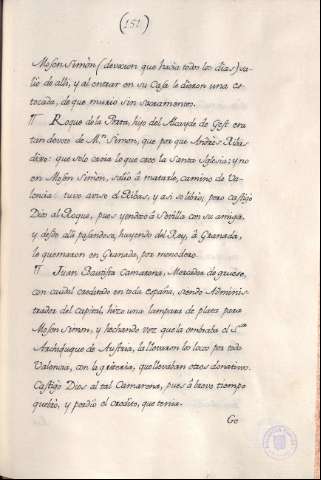 (151)
Mosen Simòn (devocion que hacia todos los dias) sa-
liò de allà, y al entrar en su Casa le dieron una es-
tocada, de que murio sin sacramentos.
¶ Roque de la Prata, hijo del Alcayde de Gest. era
tan devoto de M.ⁿ Simon, que por que Andrès Ribas
dixo: que solo creia lo que cree la Santa Iglesia; y no
en Mosen Simòn, saliò à matarle, camino de Va-
lencia: tuvo aviso el Ribas, y asi se librò; pero castigò
Dios al Roque, pues yendose à Sevilla con su amiga,
y desde allà pasandose, huyendo del Rey, à Granada,
le quemaron en Granada, por monedero.
¶ Juan Bautista Camarena, Mercader de grueso,
con caudal creditado en toda españa, siendo Adminis-
trador del capital, hizo una lampara de plata para
Mosen Simon, y hechando voz que la embiaba el S.ᵐᵒ
Archiduque de Austria, la llevaron los locos por toda
Valencia, con la griteria, que llevaban otros donativos.
Castigò Dios al tal Camarena, pues à breve tiempo
quebrò, y perdiò el credito, que tenia.
Ge